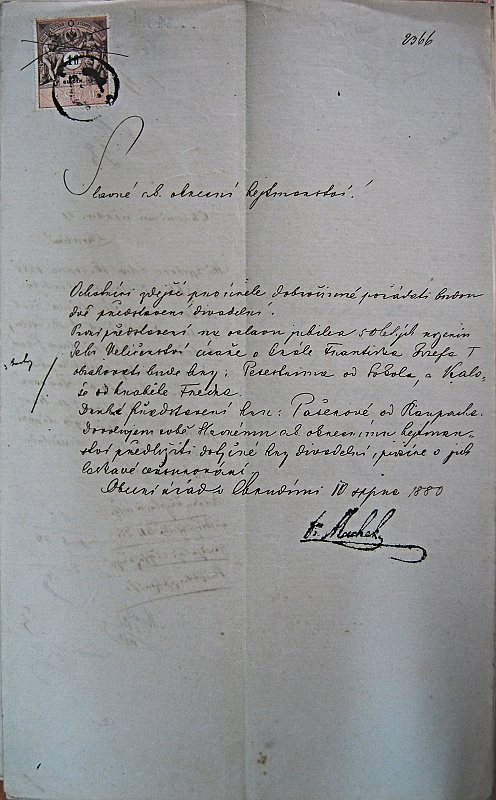 2366
Slavné c.k. okresní hejtmanství!
Ochotníci zdejší pro účele dobročinné pořádati budou
dvě představení divadelní.
První představení na oslavu jubilea 50letých narozenin
Jeho Veličenstva císaře a krále Františka Josefa I
obsahovati bude hry: od Sokola, a
od
Druhé představení hru: Pašerové od Raupacha.
Dovolujem sobě slavnému c.k. okresnímu hejtman-
ství předložiti dotyčné hry divadelní, prosíce o jich
laskavé censurování.
Obecní úřad v Chrudimi 10 srpna 1880
Machek